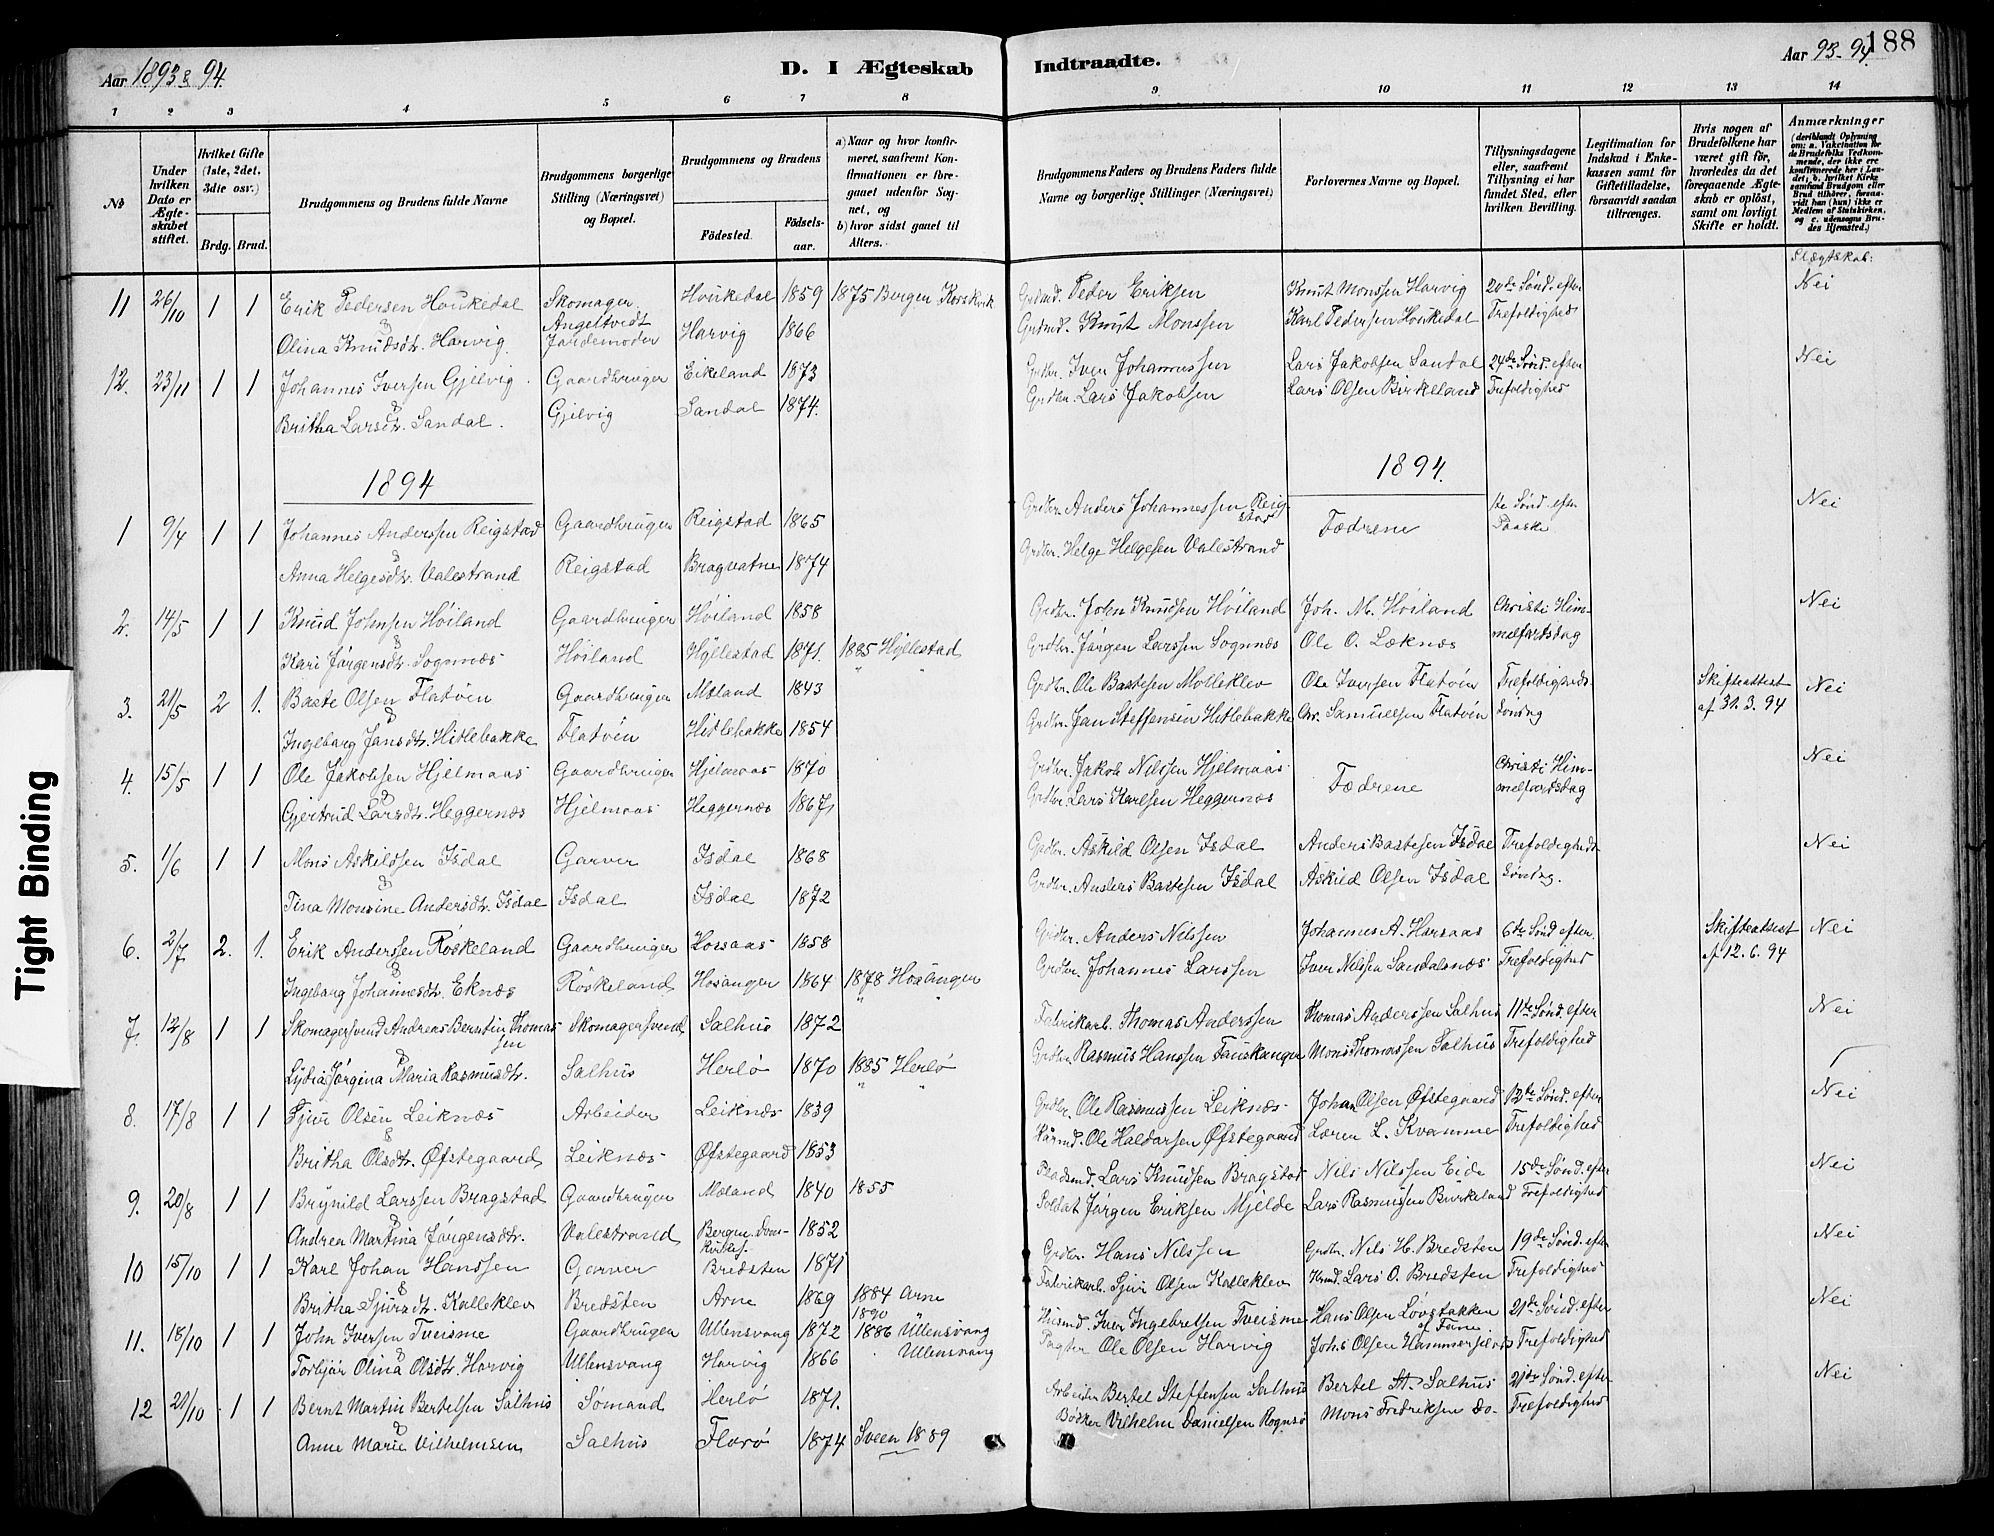 Aar 1893 & 94.
D. I Ægteskab Indtraadte.
Aar 93-94.
188
1 2 3 4 5 6 7 8 9 10 11 12 13 14
No
Under hvilken Dato er Ægteskabet stiftet.
Hvilket Gifte (1ste, 2det, 3die osv.)
Brdg. Brud.
Brudgommens og Brudens fulde Navne
Brudgommens borgerlige Stilling (Næringsvei) og Bopæl.
Brudgommens og Brudens
Fødested. Fødselsaar.
a) Naar og hvor konfirmeret, saafremt Konfirmationen er foregaaet udenfor Sognet, og
b) hvor sidst gaaet til Alters.
Brudgommens Faders og Brudens Faders fulde Navne og borgerlige Stillinger (Næringsvei)
Forlovernes Navne og Bopæl.
Tillysningsdagene eller, saafremt Tillysning ei har fundet Sted, efter hvilken Bevilling.
Legitimation for Indskud i Enkekassen samt for Giftetilladelse, forsaavidt saadan tiltrænges.
Hvis nogen af Brudefolkene har været gift før, hvorledes da det foregaaende Ægteskab er opløst, samt om lovligt Skifte er holdt.
Anmærkninger
(deriblandt Oplysning om: a. Vakcination for de Brudefolks Vedkommende, der ikke ere konfirmerede her i Landet, b. hvilket Kirkesamfund Brudgom eller Brud tilhører, forsaavidt han (hun) ikke er Medlem af Statskirken, og c. udensogns Brudes Hjemsted.)
Slægtskab:
11 26/10 1 1 Erik Pedersen Houkedal Skomager Houkedal 1859 1875 Bergen Korskirk Grdmd. Peder Eriksen Knut Monssen Harvig 20de Sønd. efter Nei
& Angeltvedt
Olina Knudsdtr. Harvig Jordemoder Harvig 1866 Grdmd. Knut Monssen Karl Pedersen Houkedal Trefoldighed
12. 23/11 1 1 Johannes Iversen Gjelvig Gaardbruger Eikeland 1873 Grdbr. Iver Johannessen Lars Jakobsen Sandal 24de Sønd. efter Nei
&
Britha Larsdtr. Sandal. Gjelvig Sandal 1874. Grdbr. Lars Jakobsen Lars Olsen Birkeland Trefoldighed
1894 1894.
1 9/4 1 1 Johannes Anderssen Reigstad Gaardbruger Reigstad 1865 Grdbr. Anders Johannessen Reigstad Fædrene 1ste Sønd. efter Paaske Nei
&
Anna Helgesdtr. Valestrand Reigstad Bragvatne 1874 Grdbr. Helge Helgesen Valestrand
2. 14/5 1 1 Knud Johnsen Høiland Gaardbruger Høiland 1858 Grdbr. John Knudsen Høiland Joh. M. Høiland Christi Him- Nei
&
Kari Jørgensdtr. Sognnæs Høiland Hyllestad 1871. 1885 Hyllestad Grdbr. Jørgen Larssen Sognnæs Ole O. Læknæs melfartsdag
3. 21/5 2 1. Baste Olsen Flatøen Gaardbruger Mæland 1843 Grdbr. Ole Bastesen Molleklev Ole Iversen Flatøen Trefoldigheds- Skifteattest Nei
&
Ingeborg Jansdtr. Hitlebakke Flatøen Hitlebakke 1854 Grdbr. Jan Steffensen Hitlebakke Chr. Samuelsen Flatøen Søndag af 31.3.94
4. 15/5 1 1 Ole Jakobsen Hjelmaas Gaardbruger Hjelmaas 1870 Grdbr. Jakob Nilssen Hjelmaas Fædrene Christi Him- Nei
&
Gjertrud Larsdtr. Heggernæs Hjelmaas Heggernæs 1867 Grdbr. Lars Karlsen Heggernæs melfartsdag
5. 1/6 1 1 Mons Askildsen Isdal Garver Isdal 1868 Grdbr. Askild Olsen Isdal Anders Bastesen Isdal Trefoldigheds Nei
&
Tina Monsine Andersdtr. Isdal Isdal Isdal 1872 Grdbr. Anders Bastesen Isdal Askild Olsen Isdal Søndag.
6. 2/7 2. 1. Erik Anderssen Röskeland Gaardbruger Horsaas 1858 Grdbr. Anders Nilssen Johannes A. Horsaas 6te Sønd. efter Skifteattest Nei
&
Ingeborg Johannesdtr. Eknæs Röskeland Hosanger 1864 1878 Hosanger Grdbr. Johannes Larssen Iver Nilssen Sandalsnæs Trefoldighed af 12.6.94
7. 12/8 1 1 Skomagersvend Andreas Berntin Thomassen Skomagersvend Salhus 1872 Fabrikarb. Thomas Anderssen Thomas Anderssen Salhus 11te Sønd. efter Nei
&
Lydia Jørgina Maria Rasmusdtr. Salhus Herlø 1870 1885 Herlø Grdbr. Rasmus Hanssen Fauskanger Mons Thomassen Salhus Trefoldighed
8. 17/8 1 1 Sjur Olsen Leiknæs Arbeider Leiknæs 1839 Grdbr. Ole Rasmussen Leiknæs Johan Olsen Øfstegaard 12te Sønd. efter Nei
&
Britha Olsdtr. Øfstegaard Leiknæs Øfstegaard 1853 Husmd. Ole Haldorsen Øfstegaard Læren L. Kvamme Trefoldighed
9. 20/8 1 1 Brynild Larssen Bragstad Gaardbruger Mæland 1840 1855 Pladsmd. Lars Knudsen Bragstad Nils Nilssen Eide 15de Sønd. efter Nei
&
Andrea Martina Jørgensdtr. Valestrand Bergen Domkirkes. 1852 Soldat Jørgen Eriksen Mjelde Lars Rasmussen Birkeland Trefoldighed
10 15/10 1 1 Karl Johan Hanssen Garver Bredsten 1871 Grdbr. Hans Nilssen Grdbr. Nils H. Bredsten 19de Sønd. efter Nei
&
Britha Sjursdtr. Kalleklev Bredsten Arne 1869 1884 Arne Fabrikarb. Sjur Olsen Kalleklev Husmd. Lars O. Bredsten Trefoldighed
11. 18/10 1 1 John Iversen Tveisme Gaardbruger Ullensvang 1872 1890 1886 Ullensvang Husmd. Iver Ingebretsen Tveisme Hans Olsen Løvstakken af Fane 21de Sønd. efter Nei
&
Torbjør Olina Olsdtr. Harvig Ullensvang Harvig 1866 Ullensvang Pagter Ole Olsen Harvig Johs Olsen Hammersland Trefoldighed
12 21/10 1 1 Bernt Martin Bertelsen Salhus Sømand Herlø 1871. Arbeider Bertel Steffensen Salhus Bertel St. Salhus 21de Sønd. efter Nei
&
Anne Marie Vilhelmsen Salhus Florø 1874 Sveen 1889 Bøkker Vilhelm Danielsen Rognsø Mons Fredriksen do- Trefoldighed
Tight Binding